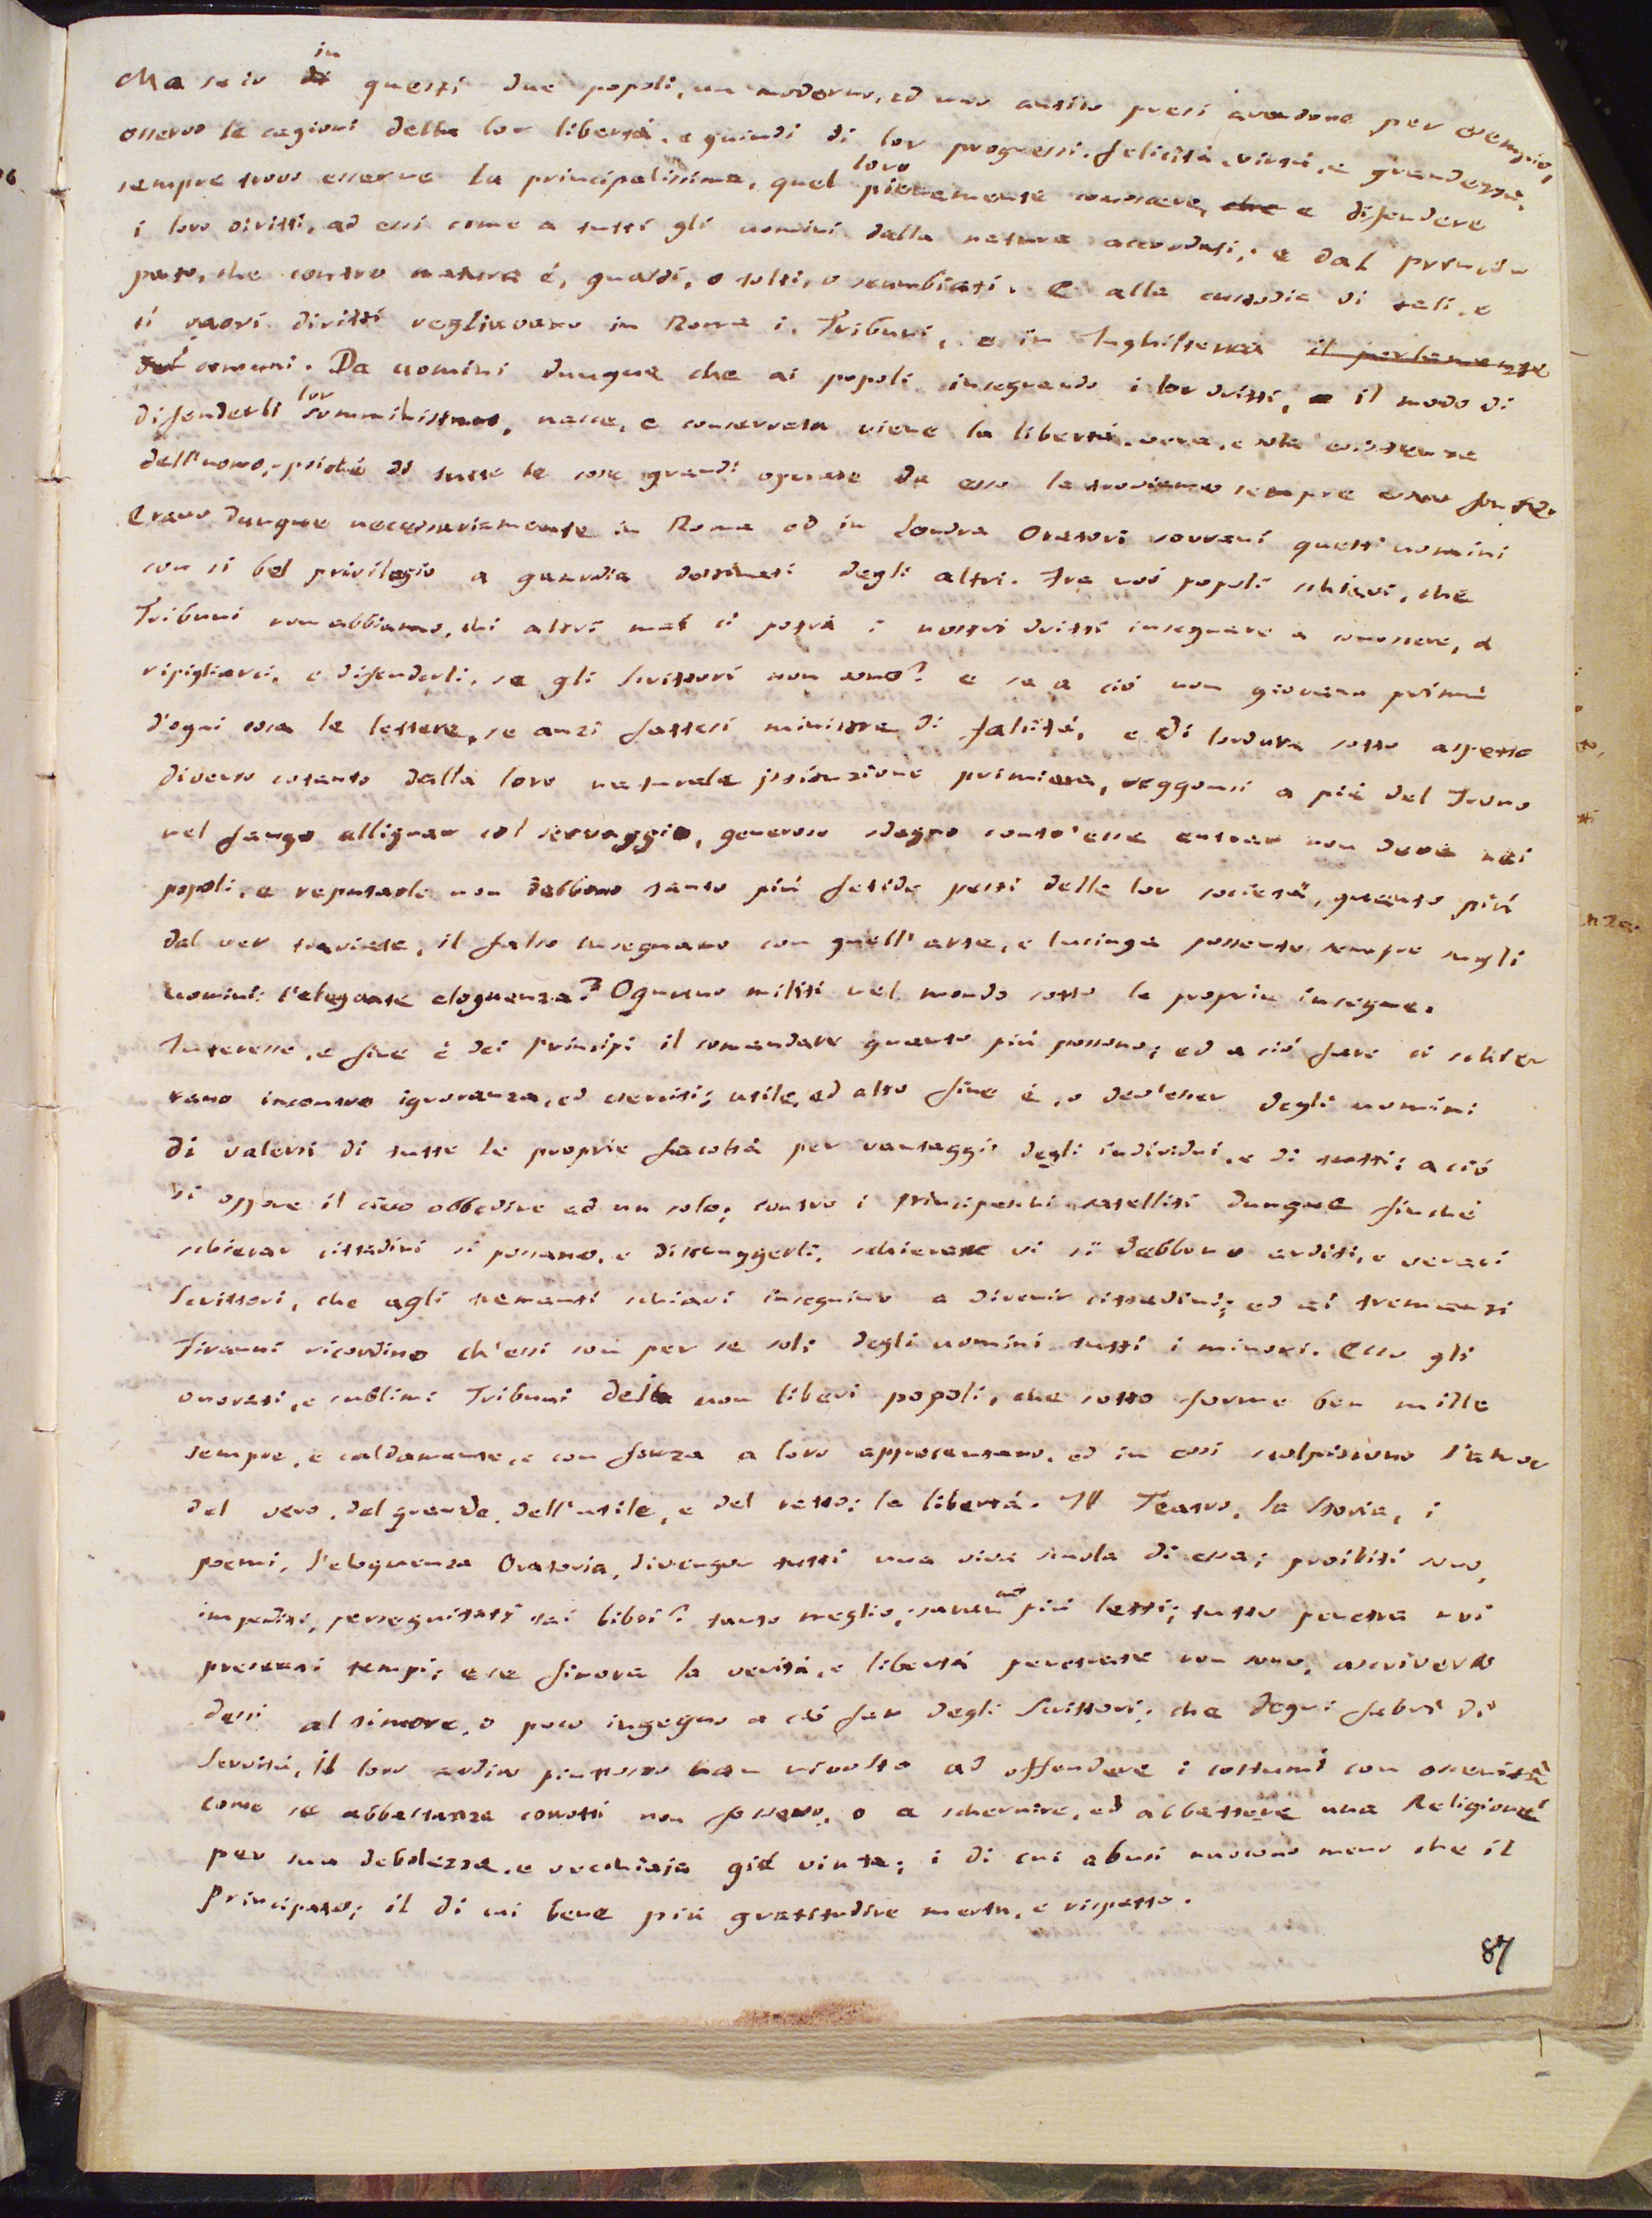 in
Ma se io di questi due popoli, un moderno, ed uno antico presi avendone per esempio,
osservo le cagioni della lor libertà, e quindi di lor progressi, felicità, virtù, e grandezza,
loro
sempre trovo esserne la principalissima, quel pienamente conoscere, che e difendere
i loro diritti, ad essi come a tutti gli uomini dalla natura accordati, e dal princi
pato, che contro natura è, guasti, o tolti, o scambiati. E alla custodia di tali, e
sì sacri diritti vegliavano in Roma i Tribuni, e in Inghilterra il parlamento
comuni. Da uomini dunque che ai popoli insegnando i lor dritti, e il modo di
lor
difenderli somministrano, nasce, e conservata viene la libertà, vera, e sola esistenza
dell'uomo, poiché di tutte le cose grandi operate da esso la troviamo sempre esser fonte.
Erano dunque necessariamente in Roma ed in Londra Oratori sovrani questi uomini
con sì bel privilegio a guardia destinati degli altri. Tra noi popoli schiavi, che
Tribuni non abbiamo, chi altri mai ci potrà i nostri dritti insegnare a conoscere, a
ripigliarci, e difenderli, se gli Scrittori non sono? e se a ciò non giovano prima
d'ogni cosa le lettere, se anzi fattesi ministre di falsità, e di lordura sotto aspetto
diverso cotanto dalla loro naturale istituzione primiera, veggonsi a piè del Trono
nel fango allignar col servaggio, generoso sdegno contr'esse entrar non deve nei
popoli, e reputarle non debbono tanto più fetide pesti delle lor società, quanto più
dal ver traviate, il falso insegnano con quell'arte, e lusinga possente sempre sugli
uomini: l'elegante eloquenza? Ognuno militi nel mondo sotto le proprie insegne.
Interesse, e fine è dei Principi il comandare quanto più possono; ed a ciò fare ci schier
rano incontro ignoranza, ed eserciti; utile, ed alto fine è, o dev'esser degli uomini
di valersi di tutte le proprie facoltà per vantaggio degli individui, e di tutti; a ciò
si oppone il cieco obbedire ad un solo; contro i principeschi satelliti dunque finché
schierar cittadini si possano, e distruggerli, schierare vi si debbono arditi, e veraci
Scrittori, che agli tremanti schiavi insegnino a divenir cittadini; ed ai tremanti
Tiranni ricordino ch'essi son per se soli degli uomini tutti i minori. Ecco gli
onorati, e sublimi Tribuni dei non liberi popoli, che sotto forme ben mille
sempre, e caldamente, e con forza a loro appresentano, ed in essi scolpiscono l'amor
del vero, del grande, dell'utile, e del retto; la libertà. Il Teatro, la Storia, i
poemi, l'eloquenza Oratoria, divengon tutti una viva scuola di essa; proibiti sono,
impediti, perseguitati tai libri? tanto meglio; saranno più letti; tutto penetra nei
presenti tempi; e se finora la verità, e libertà penetrate non sono, ascriverlo
dessi al timore, o poco ingegno a ciò far degli Scrittori; che degni fabri di
servitù, il loro ardire piuttosto han rivolto ad offendere i costumi con oscenità
come se abbastanza corrotti non fossero, o a schernire, ed abbattere una Religione
per sua debolezza, e vecchiaja già vinta; i di cui abusi nuocono meno che il
Principato; il di cui bene più gratitudine merta, e rispetto.
87